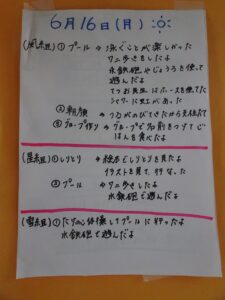 6月16日(月)
(風組) ① プール → 泳ぐことが楽しかった
ワニ歩きをしたよ
水鉄砲やじょうろを使って
遊んだよ
てつお先生はホースを使てた
シャワーに虹があった
② 朝顔 → つるがのびてきたから支柱たて
③ グループ作り → グループで名前をつけてご
はんを食べたよ
(星組) ① しりとり → 絵本でしりとりを見たよ
イラストを見て、行なった
② プール → ワニ歩きしたよ
水鉄砲で遊んだよ
(雪組) ① たいそう体操してプールに行ったよ
水鉄砲で遊んだよ